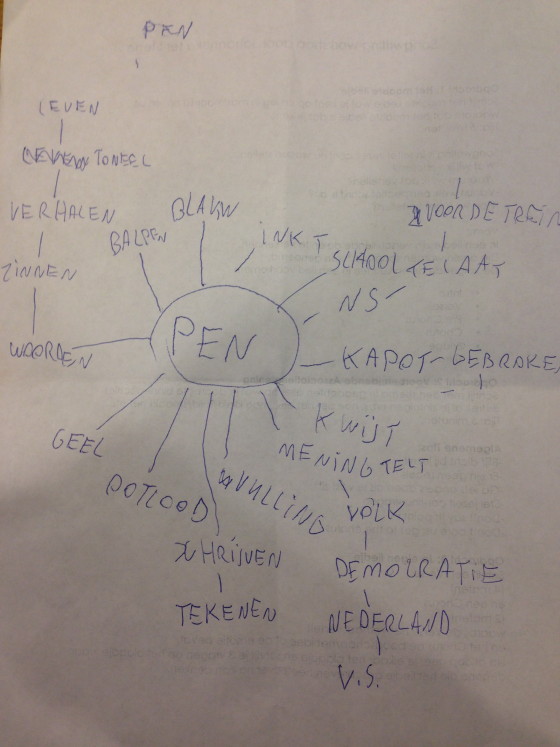 PEN
LEVEN
TONEEL
VERHALEN
ZINNEN
WOORDEN
BALPEN
BLAUW
INKT
SCHOOL
NS
TE LAAT
VOOR DE TREIN
PEN
KAPOT - GEBROKEN
KWIJT
MENING TELT
VOLK
DEMOCRATIE
NEDERLAND
V.S.
VULLING
SCHRIJVEN
TEKENEN
POTLOOD
GEEL